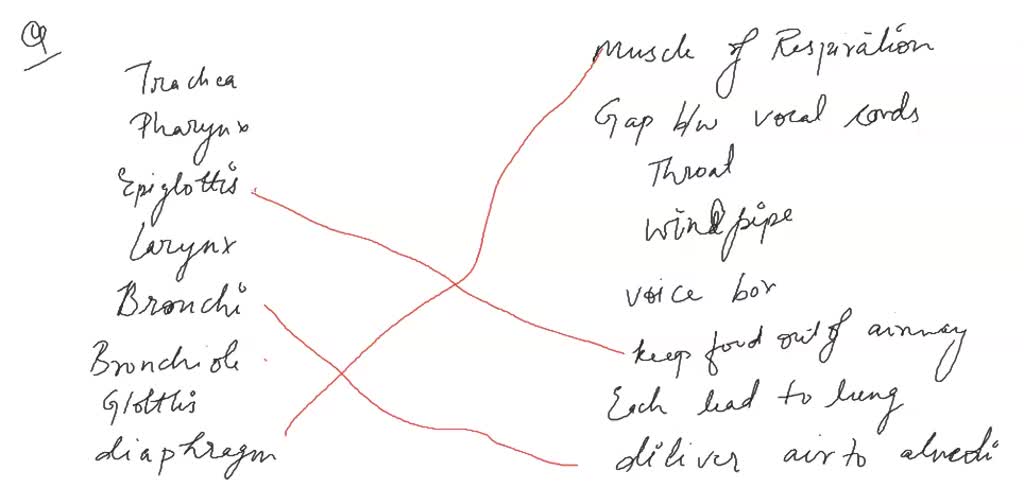 Q
Trachea
Pharynx
Epiglottis
Larynx
Bronchi
Bronchiole
Glottis
diaphragm
Muscle of Respiration
Gap b/w vocal cords
Throat
windpipe
voice box
keep food out of airway
Each lead to lung
diliver air to alveoli